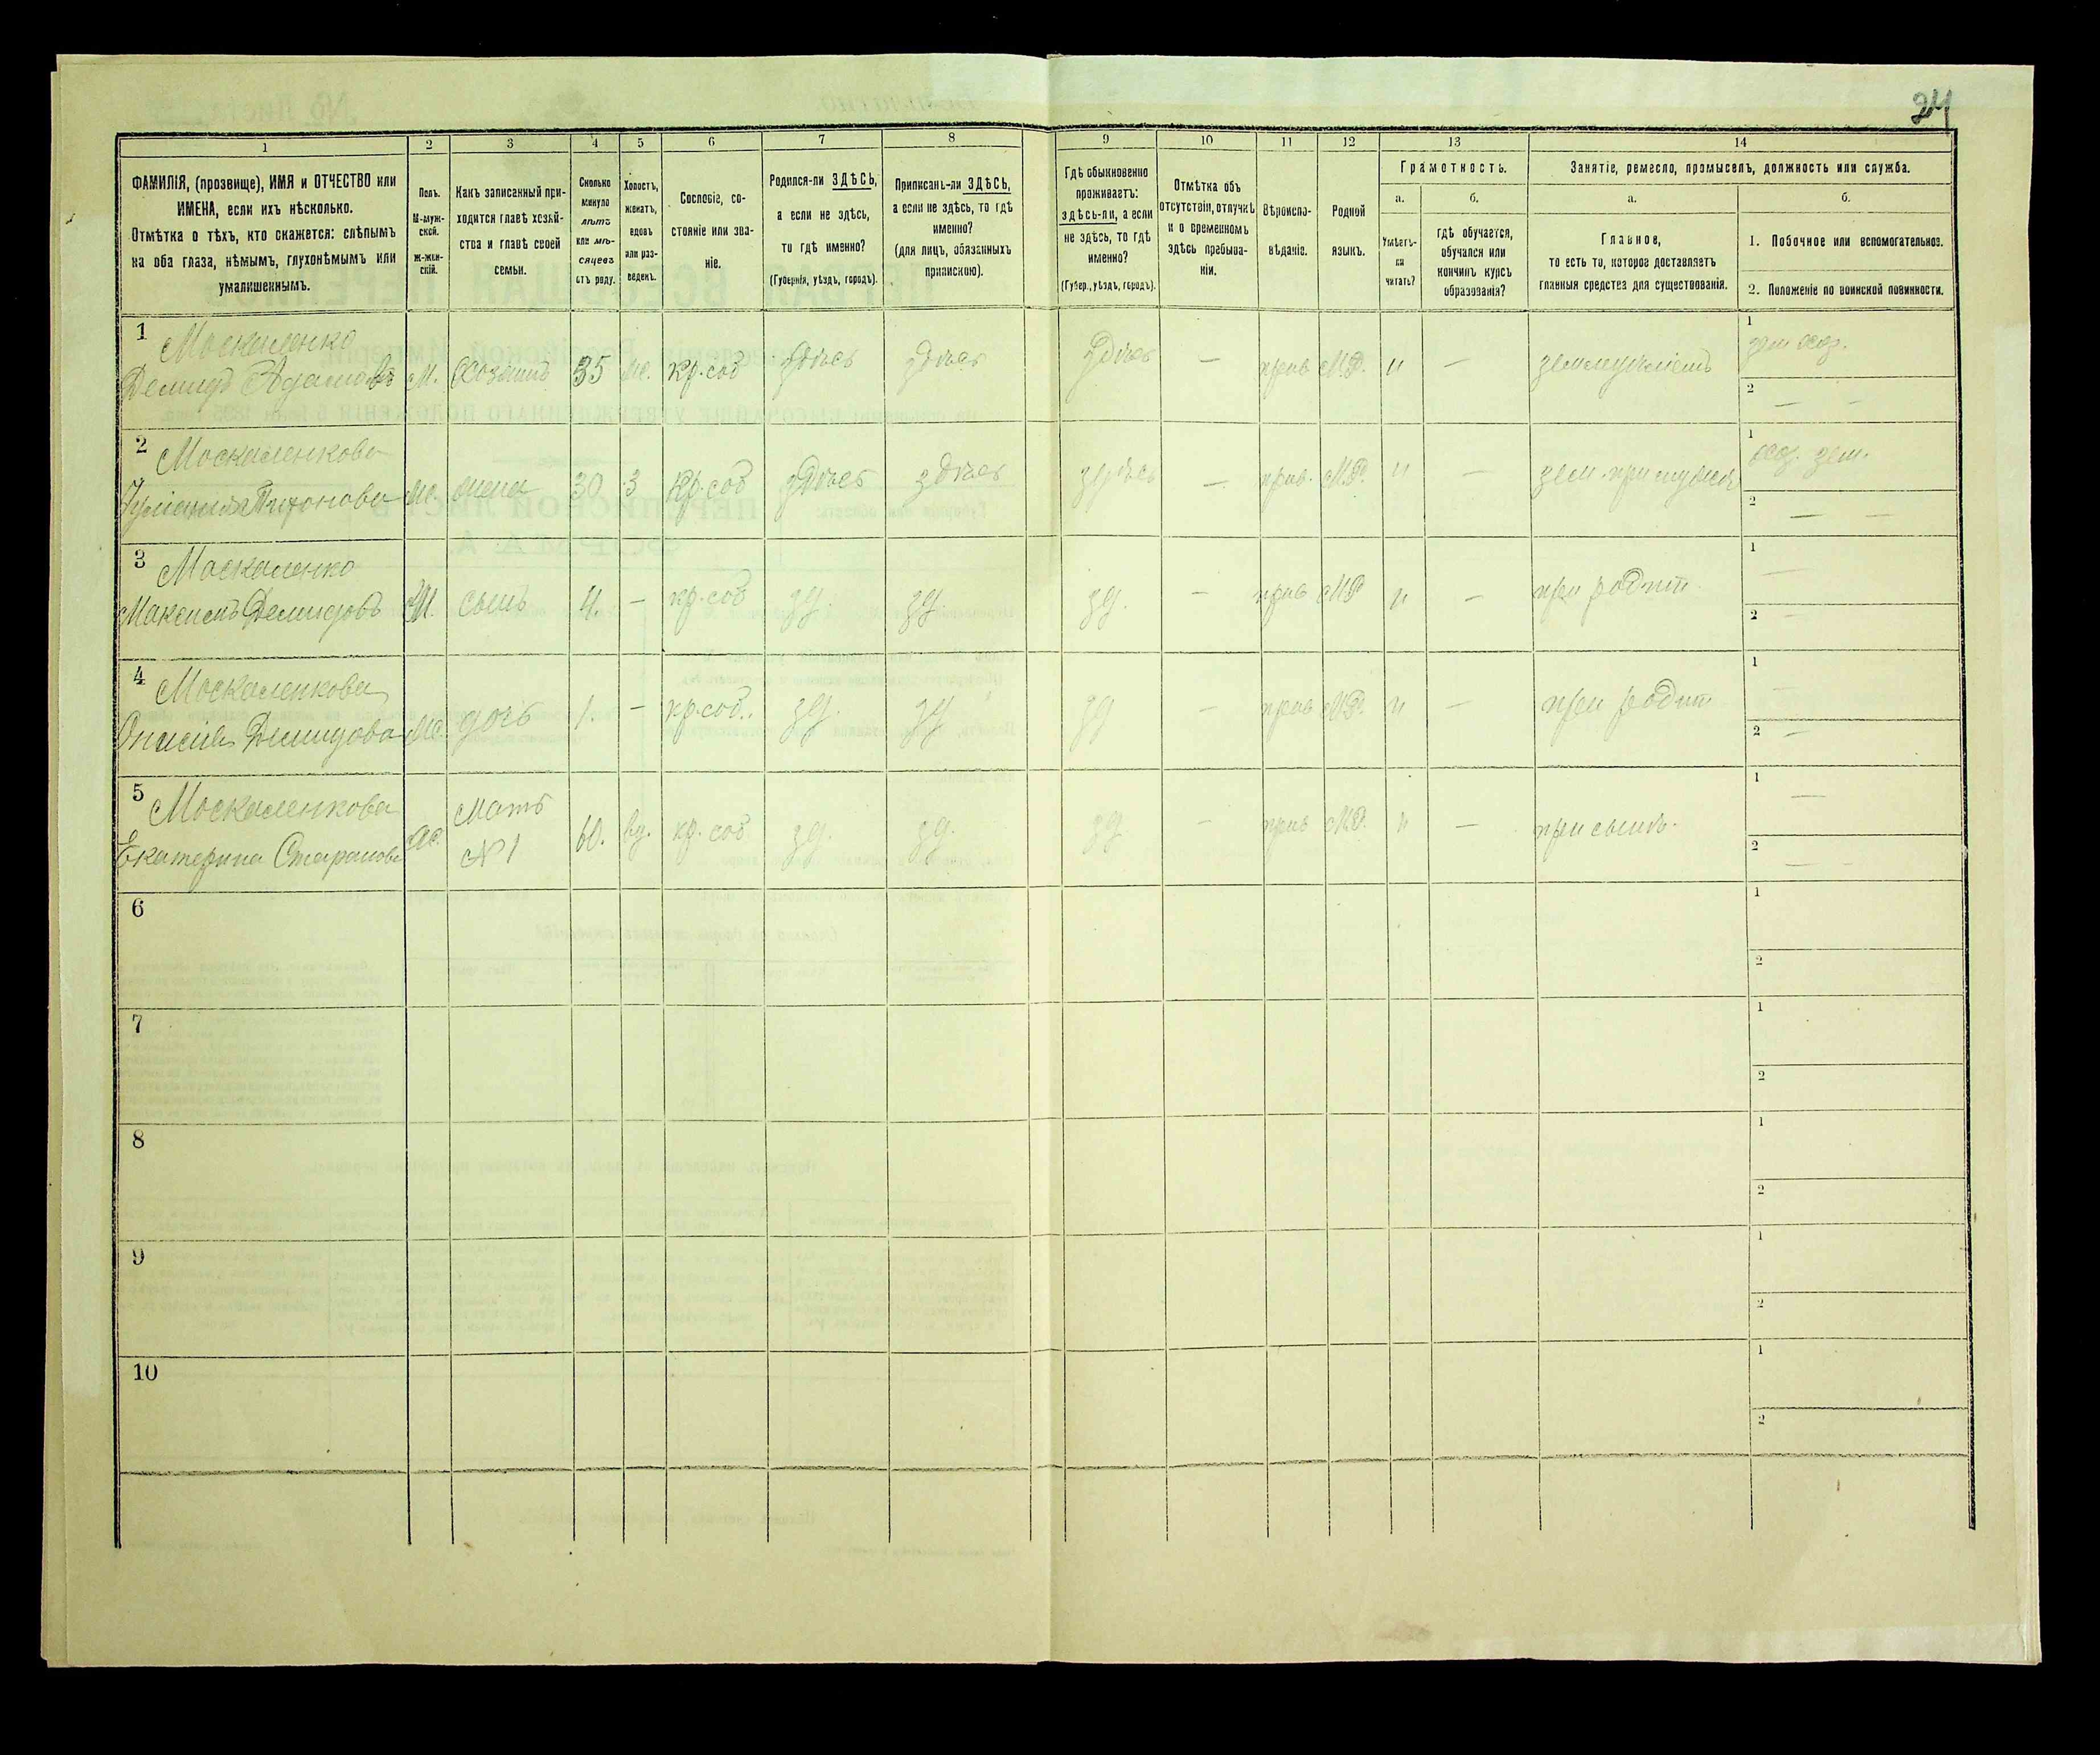 24
1 2 3 4 5 6 7 8 9 10 11 12 13 14
ФАМИЛІЯ, (прозвище), ИМЯ и ОТЧЕСТВО или
ИМЕНА, если ихъ нѣсколько.
Отмѣтка о тѣхъ, кто скажется: слѣпымъ
на оба глаза, нѣмымъ, глухонѣмымъ или
умалишеннымъ.
Полъ.
М-муж-
ской.
Ж-жен-
скій.
Какъ записанный при-
ходится главѣ хозяй-
ства и главѣ своей
семьи.
Сколько
минуло
лѣтъ
или мѣ-
сяцевъ
отъ роду.
Холостъ,
женатъ,
вдовъ
или раз-
веденъ.
Сословіе, со-
стояніе или зва-
ніе.
Родился-ли ЗДѢСЬ,
а если не здѣсь,
то гдѣ именно?
(Губернія, уѣздъ, городъ).
Приписанъ-ли ЗДѢСЬ,
а если не здѣсь, то гдѣ
именно?
(для лицъ, обязанныхъ
припискою).
Гдѣ обыкновенно
проживаетъ:
здѣсь-ли, а если
не здѣсь, то гдѣ
именно?
(Губер., уѣздъ, городъ).
Отмѣтка объ
отсутствіи, отлучкѣ
и о временномъ
здѣсь пребыва-
ніи.
Вѣроиспо-
вѣданіе.
Родной
языкъ.
Грамотность.
а.
Умѣетъ-
ли
читать?
б.
гдѣ обучается,
обучался или
кончилъ курсъ
образованія?
Занятіе, ремесло, промыселъ, должность или служба.
а.
Главное,
то есть то, которое доставляетъ
главныя средства для существованія.
б.
1. Побочное или вспомогательное.
2. Положеніе по воинской повинности.
1 Москаленко
Демидъ Адамовъ М. Хозяинъ 35 ж. кр. соб здѣсь здѣсь здѣсь — прав М.Р. н — земледѣліемъ
1
2 — —
2 Москаленкова
Тихонова ж. жена 30 з кр. соб здѣсь здѣсь здѣсь — прав. М.Р. н — зем. при мужѣ
1
2 — —
3 Москаленко
Максимъ Демидовъ М. сынъ 4. — кр. соб зд. зд зд. — прав М.Р н — при родит.
1 —
2 —
4 Москаленкова
Демидова ж. дочь 1. — кр. соб. зд. зд зд — прав М.Р. н — при родит
1 —
2 —
5 Москаленкова
Екатерина ж. Мать
№ 1 60. вд. кр. соб зд. зд. зд — прав М.Р. н — при сынѣ.
1 —
2 — —
6 1
2
7 1
2
8 1
2
9 1
2
10 1
2